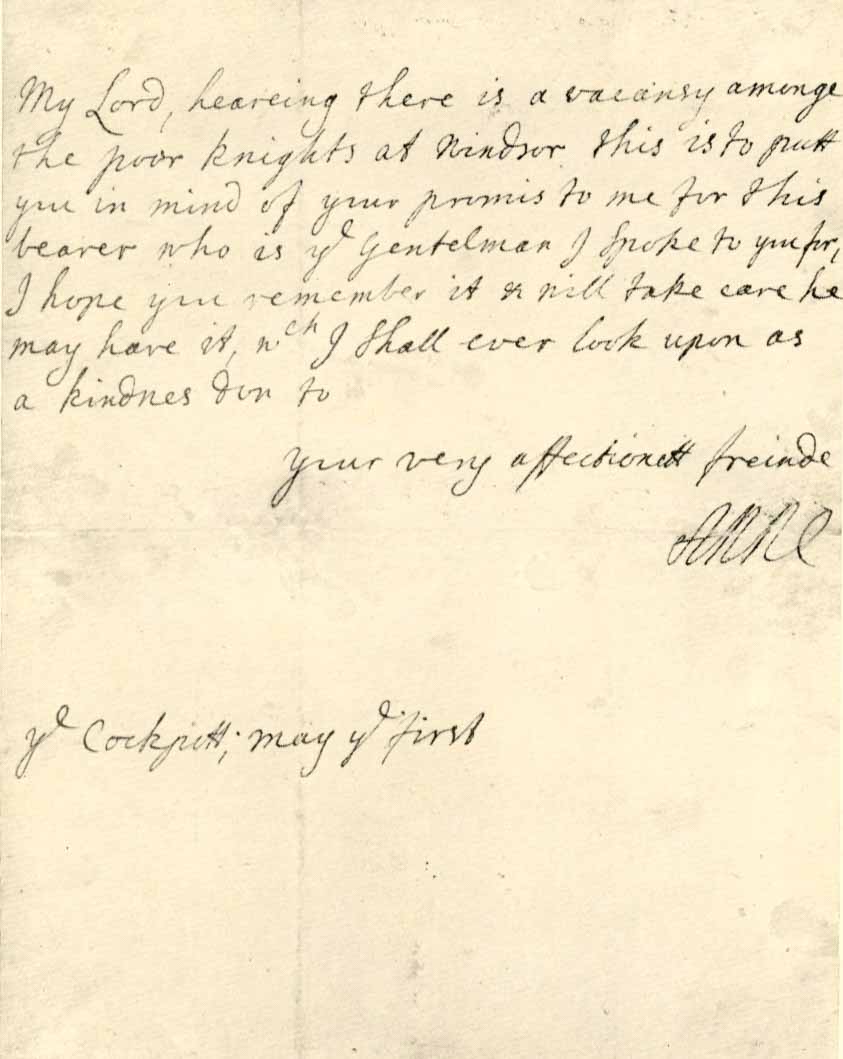 My Lord, heareing there is a vacansy amonge
the poor knights at Windsor this is to putt
you in mind of your promis to me for this
bearer who is yᵉ Gentelman I spoke to you for,
I hope you remember it & will take care he
may have it, wᶜʰ I shall ever look upon as
a kindnes don to
your very affectionett freinde
ANNE
yᵉ Cockpitt; may yᵉ first